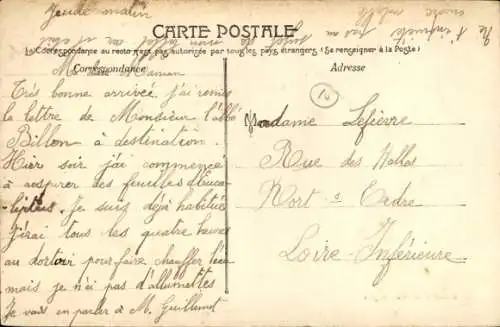 Jeudi matin
CARTE POSTALE
La Correspondance au recto n'est pas autorisée par tous les pays étrangers (Se renseigner à la Poste)
Correspondance
Adresse
Ma chère Maman
Très bonne arrivée. j'ai remis
la lettre de Monsieur l'abbé
Billon à destination.
Hier soir j'ai commencé
à aspirer des feuilles d'Euca-
liptus. Je suis déjà habituée
J'irai tous les quatre heures
au dortoir pour faire chauffer l'eau
mais je n'ai pas d'allumettes
Je vais en parler à M. Guillemet
Madame Lefièvre
Rue des Halles
Nort s Erdre
Loire-Inférieure
Ne t'inquiète pas au
sujet de mon